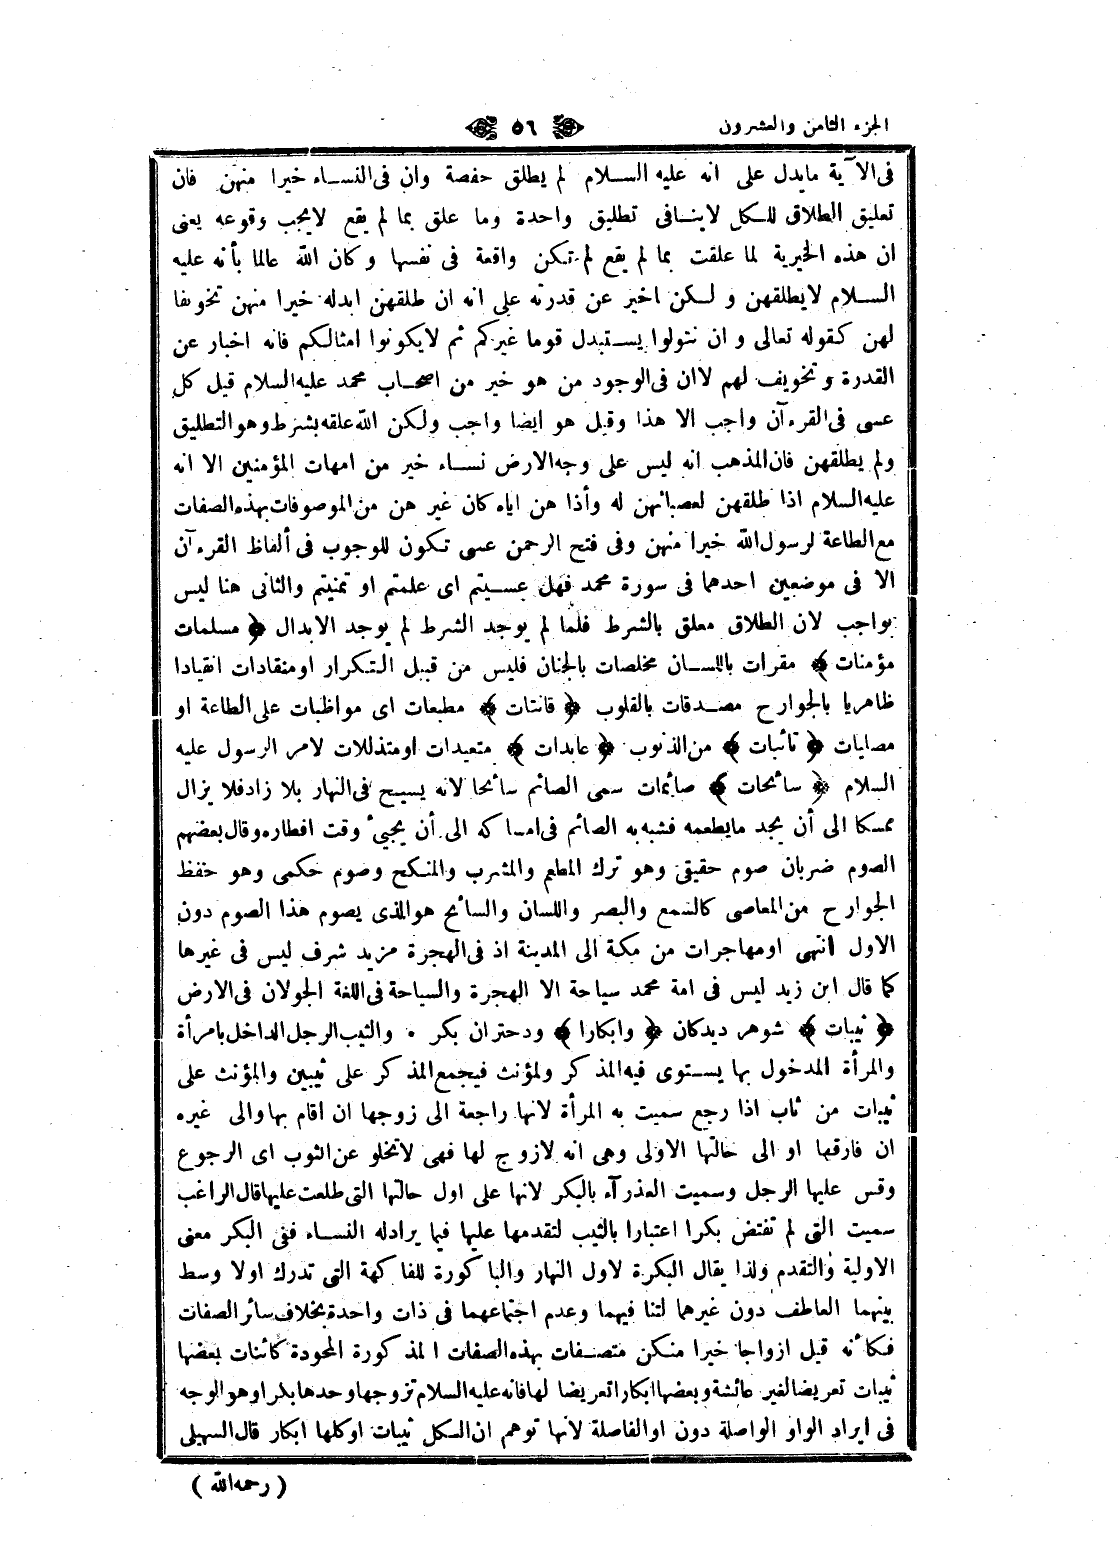 الجزء الثامن والعشرون
٥٦
فى الآية مايدل على انه عليه السلام لم يطلق حفصة وان فى النساء خيرا منهن فان
تعليق الطلاق للكل لاينافى تطليق واحدة وما علق بما لم يقع لايجب وقوعه يعنى
ان هذه الخيرية لما علقت بما لم يقع لم تكن واقعة فى نفسها وكان الله عالما بأنه عليه
السلام لايطلقهن ولكن اخبر عن قدرته على انه ان طلقهن ابدله خيرا منهن تخويفا
لهن كقوله تعالى وان تتولوا يستبدل قوما غيركم ثم لايكونوا امثالكم فانه اخبار عن
القدرة وتخويف لهم لاان فى الوجود من هو خير من اصحاب محمد عليه السلام قيل كل
عسى فى القرءآن واجب الا هذا وقيل هو ايضا واجب ولكن الله علقه بشرط وهو التطليق
ولم يطلقهن فان المذهب انه ليس على وجه الارض نساء خير من امهات المؤمنين الا انه
عليه السلام اذا طلقهن لعصيانهن له وأذا هن اياه كان غير هن من الموصوفات بهذه الصفات
مع الطاعة لرسول الله خيرا منهن وفى فتح الرحمن عسى تكون للوجوب فى ألفاظ القرءآن
الا فى موضعين احدهما فى سورة محمد فهل عسيتم اى علمتم او تمنيتم والثانى هنا ليس
بواجب لان الطلاق معلق بالشرط فلما لم يوجد الشرط لم يوجد الابدال ﴿ مسلمات
مؤمنات ﴾ مقرات باللسان مخلصات بالجنان فليس من قبيل التكرار او منقادات انقيادا
ظاهريا بالجوارح مصدقات بالقلوب ﴿ قانتات ﴾ مطيعات اى مواظبات على الطاعة او
مصليات ﴿ تائبات ﴾ من الذنوب ﴿ عابدات ﴾ متعبدات او متذللات لامر الرسول عليه
السلام ﴿ سائحات ﴾ صائمات سمى الصائم سائحا لانه يسيح فى النهار بلا زاد فلا يزال
ممسكا الى أن يجد مايطعمه فشبه به الصائم فى امساكه الى أن يجيئ وقت افطاره وقال بعضهم
الصوم ضربان صوم حقيقى وهو ترك المطعم والمشرب والمنكح وصوم حكمى وهو حفظ
الجوارح من المعاصى كالسمع والبصر واللسان والسائح هو الذى يصوم هذا الصوم دون
الاول انتهى او مهاجرات من مكة الى المدينة اذ فى الهجرة مزيد شرف ليس فى غيرها
كما قال ابن زيد ليس فى امة محمد سياحة الا الهجرة والسياحة فى اللغة الجولان فى الارض
﴿ ثيبات ﴾ شوهر ديدكان ﴿ وابكارا ﴾ ودختران بكر • والثيب الرجل الداخل بامرأة
والمرأة المدخول بها يستوى فيه المذكر والمؤنث فيجمع المذكر على ثيبين والمؤنث على
ثيبات من ثاب اذا رجع سميت به المرأة لانها راجعة الى زوجها ان اقام بها والى غيره
ان فارقها او الى حالتها الاولى وهى انه لازوج لها فهى لاتخلو عن الثوب اى الرجوع
وقس عليها الرجل وسميت العذرآء بالبكر لانها على اول حالتها التى طلعت عليها قال الراغب
سميت التى لم تفتض بكرا اعتبارا بالثيب لتقدمها عليها فيما يراد له النساء ففى البكر معنى
الاولية والتقدم ولذا يقال البكرة لاول النهار والباكورة للفاكهة التى تدرك اولا وسط
بينهما العاطف دون غيرهما لتنافيهما وعدم اجتماعهما فى ذات واحدة بخلاف سائر الصفات
فكأنه قيل ازواجا خيرا منكن متصفات بهذه الصفات المذكورة المحمودة كائنات بعضها
ثيبات تعريضا لغير عائشة وبعضها ابكارا تعريضا لها فانه عليه السلام تزوجها وحدها بكرا وهو الوجه
فى ايراد الواو الواصلة دون او الفاصلة لانها توهم ان الكل ثيبات او كلها ابكار قال السهيلى
( رحمه الله )